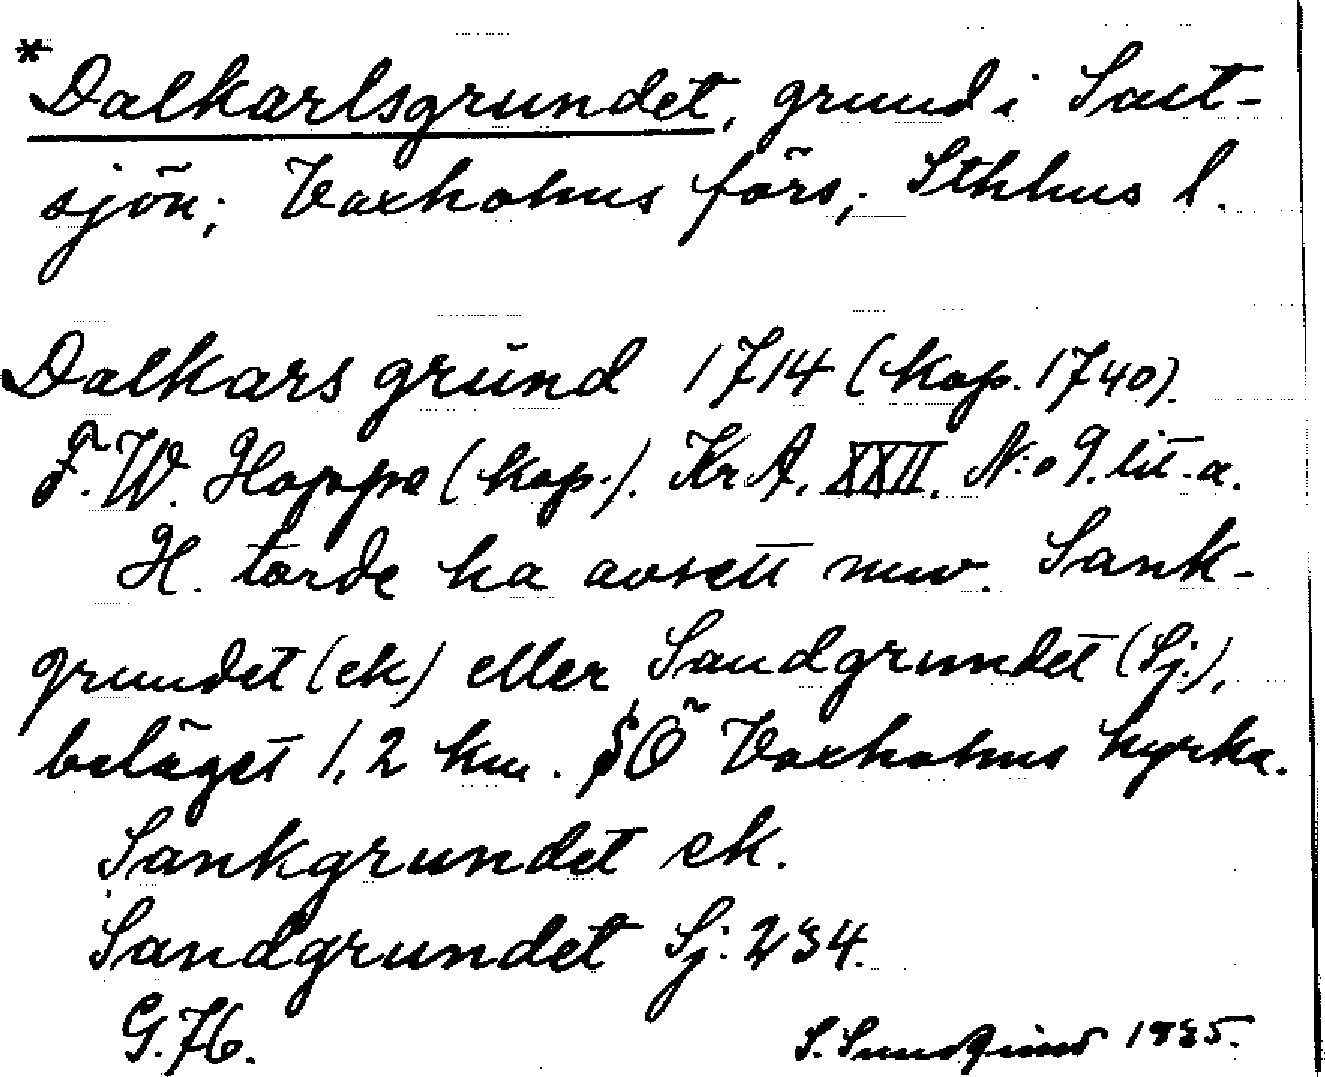 *Dalkarlsgrundet, grund i Salt-
sjön; Vaxholms förs., Sthlms l.
Dalkars grund 1714 (kop. 1740).
F. W. Hoppe (kop.). Kr A. XXII. N:o 9. lit. a.
H. torde ha avsett nuv. Sank-
grundet (ek) eller Sandgrundet (Sj.),
beläget 1,2 km. SÖ Vaxholms kyrka.
Sankgrundet ek.
Sandgrundet Sj: 234.
G. 76.
S. 1935.